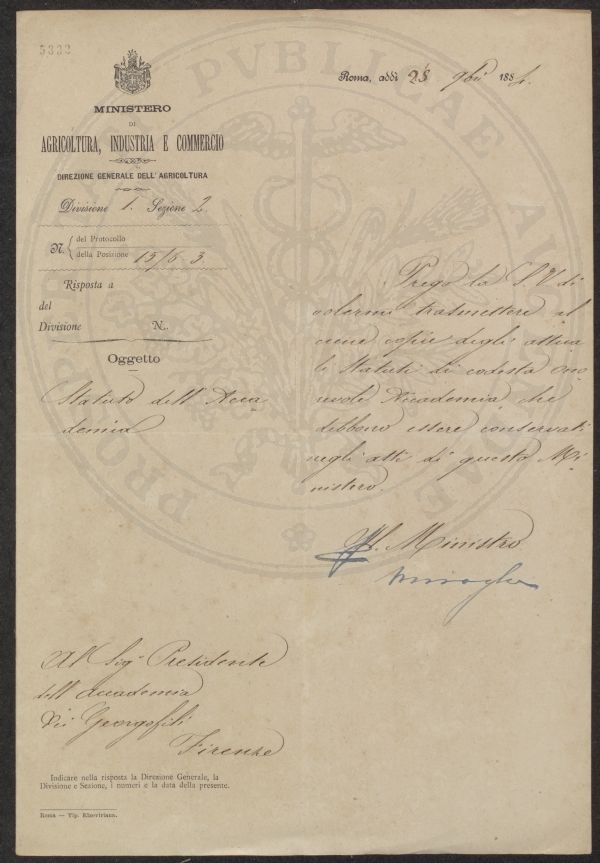 5333
Roma, addì 28 9bre 1884.
MINISTERO
DI
AGRICOLTURA, INDUSTRIA E COMMERCIO
DIREZIONE GENERALE DELL'AGRICOLTURA
Divisione 1. Sezione 2
N. del Protocollo
della Posizione 15/6-3
Risposta a
del
Divisione N.
Oggetto
Statuto dell'Acca
demia
Prego la S. V. di
volermi trasmettere al
cune copie degli attua
li Statuti di codesta ono
revole Accademia che
debbono essere conservati
negli atti di questo Mi
nistero.
Il Ministro
Al Sigr Presidente
dell'Accademia
dei Georgofili
Firenze
Indicare nella risposta la Direzione Generale, la
Divisione e Sezione, i numeri e la data della presente.
Roma — Tip. Elzeviriana.
PVBLICAE